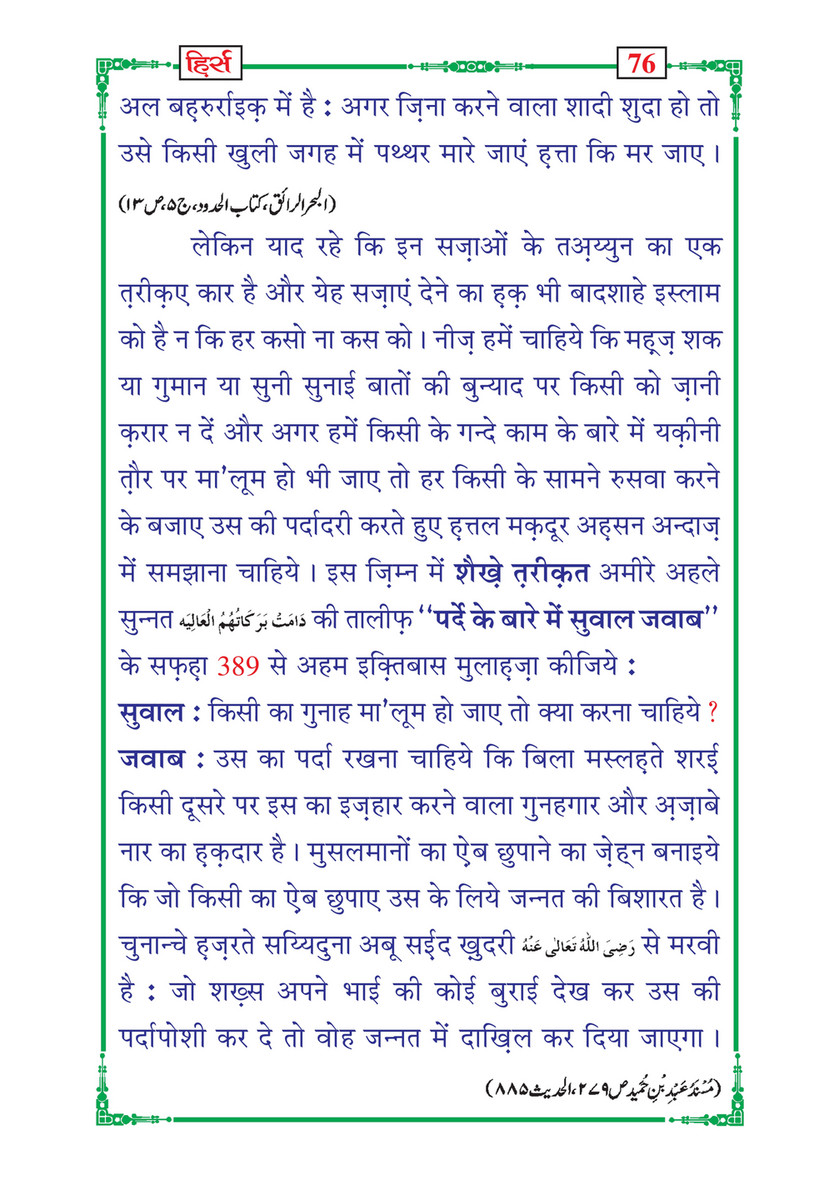 हिर्स
76
अल बह़रुर्राइक़ में है : अगर ज़िना करने वाला शादी शुदा हो तो
उसे किसी खुली जगह में पथ्थर मारे जाएं ह़त्ता कि मर जाए ।
(البحر الرائق، کتاب الحدود، ج۵، ص۱۳)
लेकिन याद रहे कि इन सज़ाओं के तअ़य्युन का एक
त़रीक़ए कार है और येह सज़ाएं देने का ह़क़ भी बादशाहे इस्लाम
को है न कि हर कसो ना कस को । नीज़ हमें चाहिये कि मह़्ज़ शक
या गुमान या सुनी सुनाई बातों की बुन्याद पर किसी को ज़ानी
क़रार न दें और अगर हमें किसी के गन्दे काम के बारे में यक़ीनी
त़ौर पर मा'लूम हो भी जाए तो हर किसी के सामने रुसवा करने
के बजाए उस की पर्दादरी करते हुए ह़त्तल मक़्दूर अह़सन अन्दाज़
में समझाना चाहिये । इस ज़िम्न में शैख़े त़रीक़त अमीरे अहले
सुन्नत دَامَتْ بَرَكَاتُهُمُ الْعَالِيَه की तालीफ़ ‘‘पर्दे के बारे में सुवाल जवाब’’
के सफ़ह़ा 389 से अहम इक़्तिबास मुलाह़ज़ा कीजिये :
सुवाल : किसी का गुनाह मा'लूम हो जाए तो क्या करना चाहिये ?
जवाब : उस का पर्दा रखना चाहिये कि बिला मस्लह़ते शरई
किसी दूसरे पर इस का इज़हार करने वाला गुनहगार और अ़ज़ाबे
नार का ह़क़दार है । मुसलमानों का ऐ़ब छुपाने का ज़ेह्न बनाइये
कि जो किसी का ऐ़ब छुपाए उस के लिये जन्नत की बिशारत है ।
चुनान्चे ह़ज़रते सय्यिदुना अबू सई़द ख़ुदरी رَضِىَ اللهُ تَعَالٰى عَنْهُ से मरवी
है : जो शख़्स अपने भाई की कोई बुराई देख कर उस की
पर्दापोशी कर दे तो वोह जन्नत में दाख़िल कर दिया जाएगा ।
(مُسْنَد عَبْد بُنِ حُمَید ص۲۷۹، الحدیث ۸۸۵)